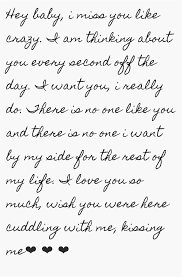 Hey baby, i miss you like
crazy. I am thinking about
you every second off the
day. I want you, i really
do. There is no one like you
and there is no one i want
by my side for the rest of
my life. I love you so
much, wish you were here
cuddling with me, kissing
me❤ ❤ ❤